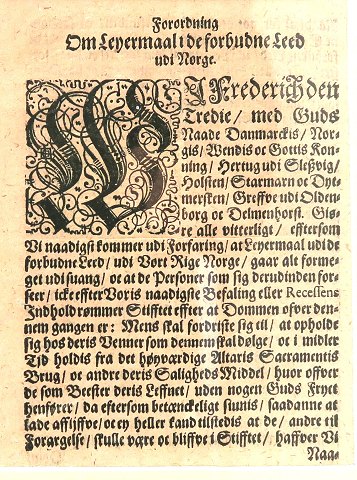 Forordning
Om Leyermaal i de forbudne Leed
udi Norge.
WJ Frederich den
Tredie/ med Guds
Naade Danmarckis/ Nor-
gis/ Wendis oc Gottis Kon-
ning/ Hertug udi Sleßvig/
Holsten/ Stormarn oc Dyt-
mersken/ Greffve udi Olden-
borg oc Delmenhorst. Giø-
re alle vitterligt/ efftersom
Vi naadigst kommer udi Forfaring/ at Leyermaal udi de
forbudne Leed/ udi Vort Rige Norge/ gaar alt forme-
get udi suang/ oc at de Personer som sig derudinden for-
seer/ icke effter Voris naadigste Befaling eller Recessens
Indhold rømmer Stifftet effter at Dommen ofver den-
nem gangen er: Mens skal fordriste sig til/ at opholde
sig hos deris Venner som dennem skal dølge/ oc i midler
Tjd holdis fra det høyværdige Altaris Sacramentis
Brug/ oc andre deris Saligheds Middel/ huor offver
de som Beester deris Leffnet/ uden nogen Guds Fryct
henfører/ da efftersom betænckeligt siunis/ saadanne at
lade afflijffve/ oc ey heller kand tilstedis at de/ andre til
Forargelse/ skulle være oc bliffve i Stifftet/ haffver Vi
Naa-